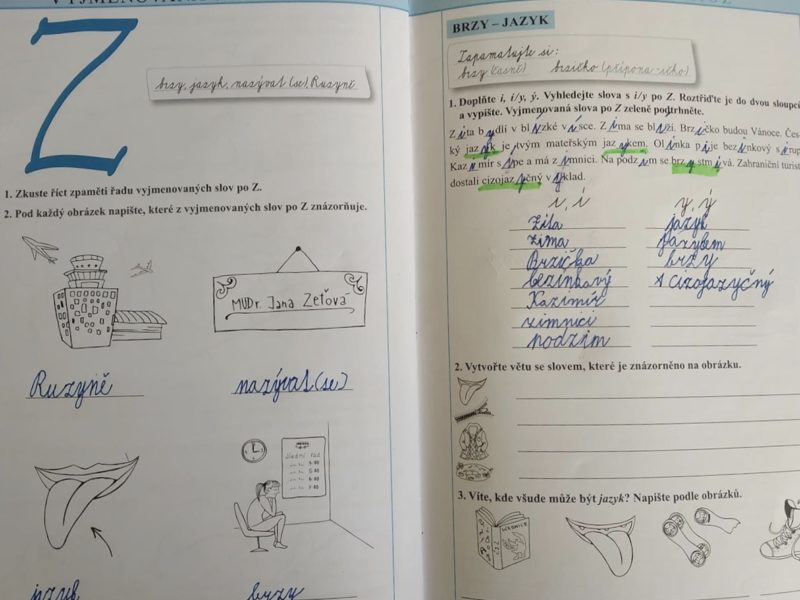 Z
brzy, jazyk, nazývat (se), Ruzyně
1. Zkuste říct zpaměti řadu vyjmenovaných slov po Z.
2. Pod každý obrázek napište, které z vyjmenovaných slov po Z znázorňuje.
MUDr. Jana Zeťová
Ruzyně
nazývat (se)
úřední řád
jazyk
brzy
BRZY – JAZYK
Zapamatujte si:
brzy (časně) brzičko (přípona -ičko)
1. Doplňte i, í/y, ý. Vyhledejte slova s i/y po Z. Roztřiďte je do dvou sloupců
a vypište. Vyjmenovaná slova po Z zeleně podtrhněte.
Zita bydlí v blízké vísce. Zima se blíží. Brzičko budou Vánoce. Čes-
ký jazyk je tvým mateřským jazykem. Olinka pije bezinkový sirup.
Kazimír sípe a má zimnici. Na podzim se brzy stmívá. Zahraniční turisté
dostali cizojazyčný výklad.
i, í y, ý
Zita jazyk
zima jazykem
Brzička brzy
bezinkový cizojazyčný
Kazimír
zimnici
podzim
2. Vytvořte větu se slovem, které je znázorněno na obrázku.
3. Víte, kde všude může být jazyk? Napište podle obrázků.